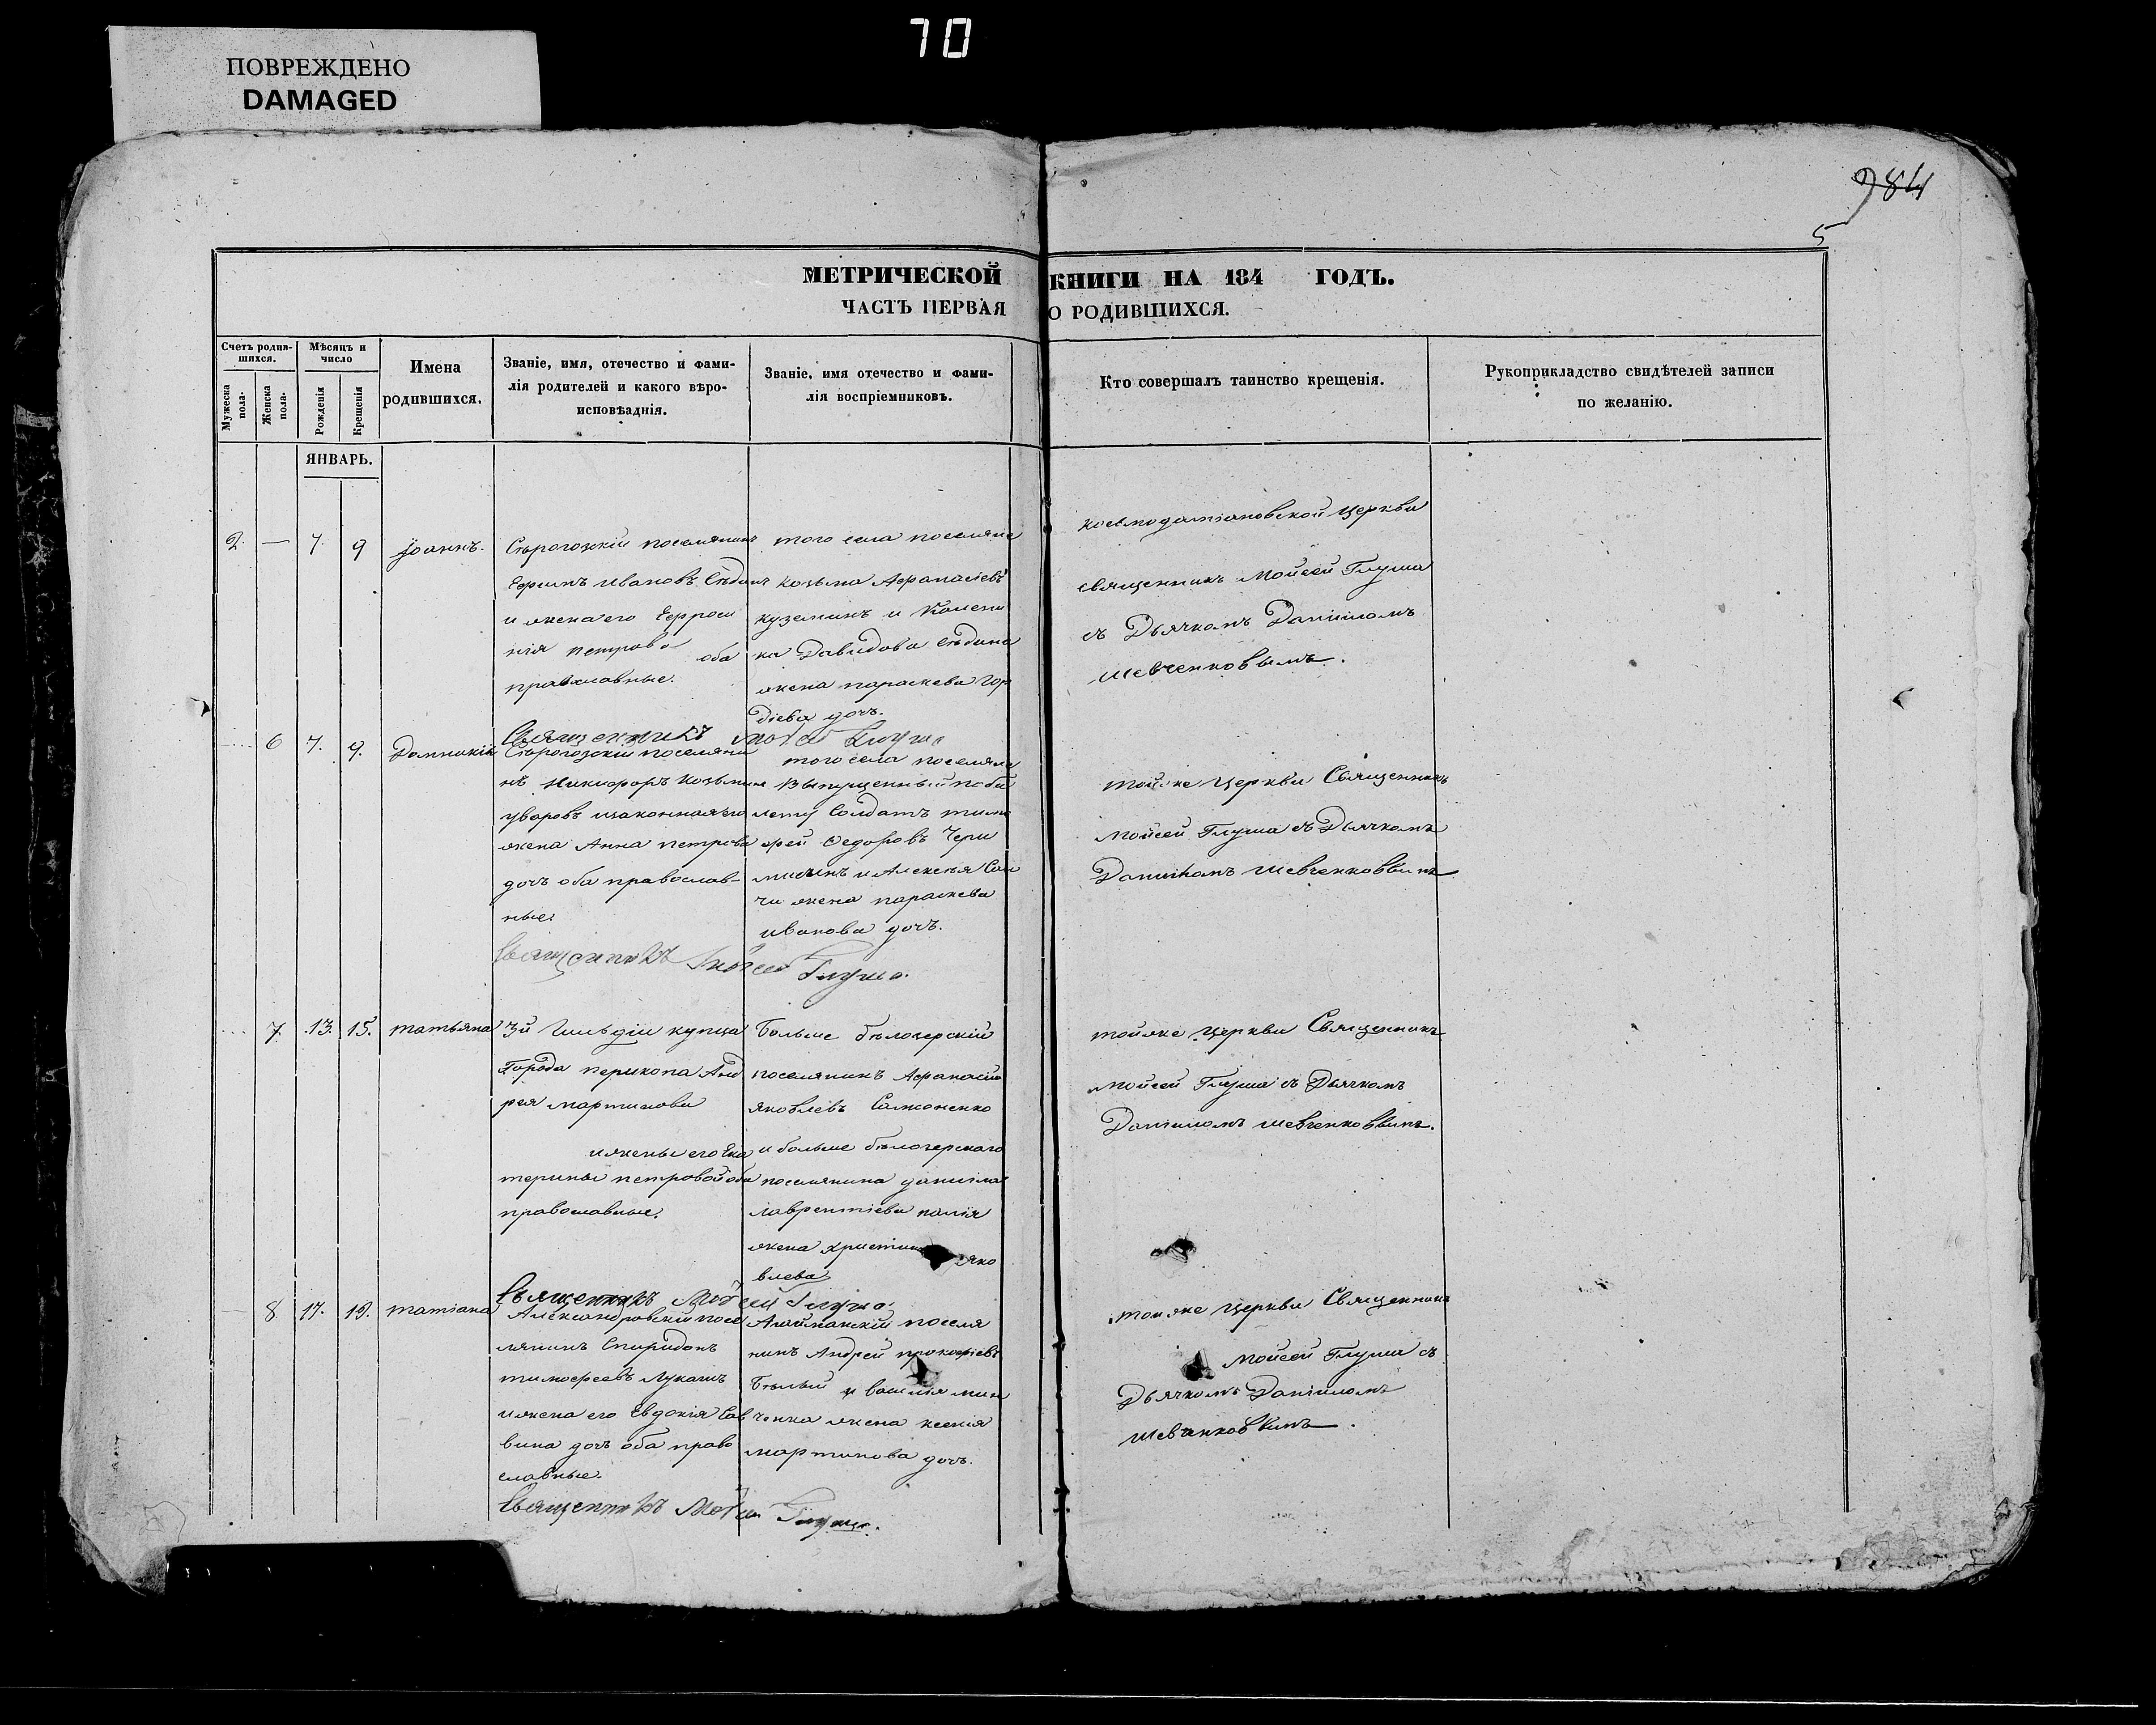 70
ПОВРЕЖДЕНО
DAMAGED
984
5
МЕТРИЧЕСКОЙ КНИГИ НА 184 ГОДЪ.
ЧАСТЬ ПЕРВАЯ О РОДИВШИХСЯ.
Счетъ родив-
шихся.
Мужеска
пола.
Женска
пола.
Мѣсяцъ и
число
Рожденія
Крещенія
Имена
родившихся.
Званіе, имя, отечество и фами-
лія родителей и какого вѣро-
исповѣданія.
Званіе, имя отечество и фами-
лія воспріемниковъ.
Кто совершалъ таинство крещенія.
Рукоприкладство свидѣтелей записи
по желанію.
ЯНВАРЬ.
2. — 7. 9 Іоаннъ.
Сѣрогозскій поселянинъ
Ефимъ Ивановъ
и жена его Ефроси
нія Петрова оба
православные.
того села поселяне
Козьма Афанасіевъ
Куземинъ и
ка Давидова
жена Параскева Гор
дієва дочь.
Космодаміановской Церкви
священникъ Мойсей Глуша
съ Дьячкомъ Даніиломъ
Шевченковымъ.
Священникъ Мойсей Глуша
6 7. 9. Домникія
Сѣрогозскій поселяни
нъ Никифоръ Козьминъ
Уваровъ изаконная его
жена Анна Петрова
дочь оба православ-
ные.
того села поселяне
Выпущенный по би
лету Солдатъ Тимо
фей Федоровъ
и Алексѣя
жена Параскева
Иванова дочь.
тойже Церкви Священникъ
Мойсей Глуша съ Дьячкомъ
Даніиломъ Шевченковвимъ
Священникъ Мойсей Глуша.
7. 13. 15. Татьяна
3й Гильдіи купца
Города Перикопа Анд
рея Мартинова
ижены его Ека
терины Петровой оба
православные.
Больше бѣлозерскій
поселянинъ Афанасій
Яковлевъ
и больше бѣлозерскаго
поселянина Даніила
Лаврентіева
жена Христина Яко
влева
тойже Церкви Священникъ
Мойсей Глуша съ Дьячкомъ
Даніиломъ Шевченковвимъ.
Священникъ Мойсей Глуша.
8 17. 19. Татіана
Александровскій посе
лянинъ Спиридонъ
Тимофеевъ Лукашъ
ижена его Евдокія Сав
вина дочь оба право
славные.
Агайманскій поселя
нинъ Андрей Прокофіевъ
Бѣлый и Василія Мин
ченка жена Ксенія
Мартинова дочь.
тойже Церкви Священникъ
Мойсей Глуша съ
Дьячкомъ Даніиломъ
Шевченковвимъ.
Священникъ Мойсей Глуша.